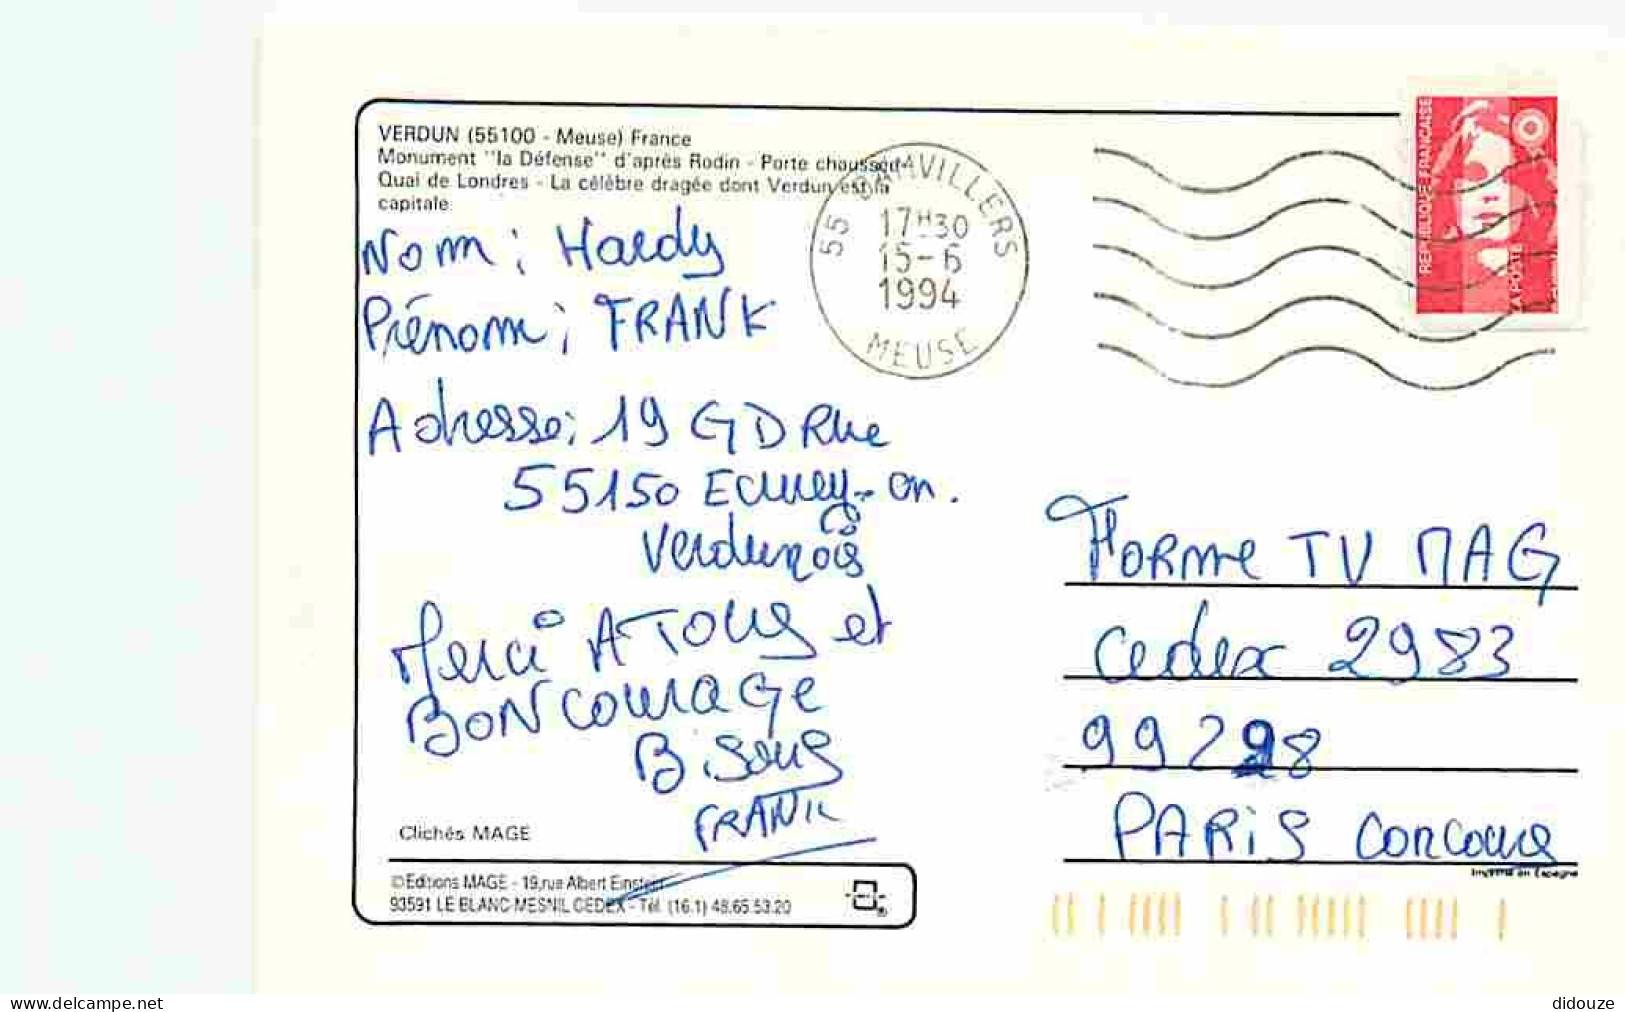 VERDUN (55100 - Meuse) France
Monument "la Défense" d'après Rodin - Porte chaussée
Quai de Londres - La célèbre dragée dont Verdun est la
capitale
Nom : Hardy
Prénom ; FRANK
Adresse ; 19 GD Rue
55150 Ecurey-en.
Verdunois
Merci A Tous et
BON courage
Bisous
FRANK
Clichés MAGE
© Editions MAGE - 19, rue Albert Einstein
93591 LE BLANC MESNIL CEDEX - Tél. (16.1) 48.65.53.20
55 DAMVILLERS
17H30
15-6
1994
MEUSE
REPUBLIQUE FRANÇAISE
LA POSTE
Forme TV MAG
cedex 2983
99228
PARIS concours
Imprimé en Espagne
www.delcampe.net
didouze